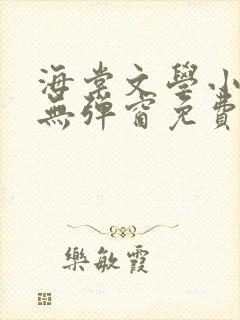 海棠文學小
無彈窗免費
樂敏霞